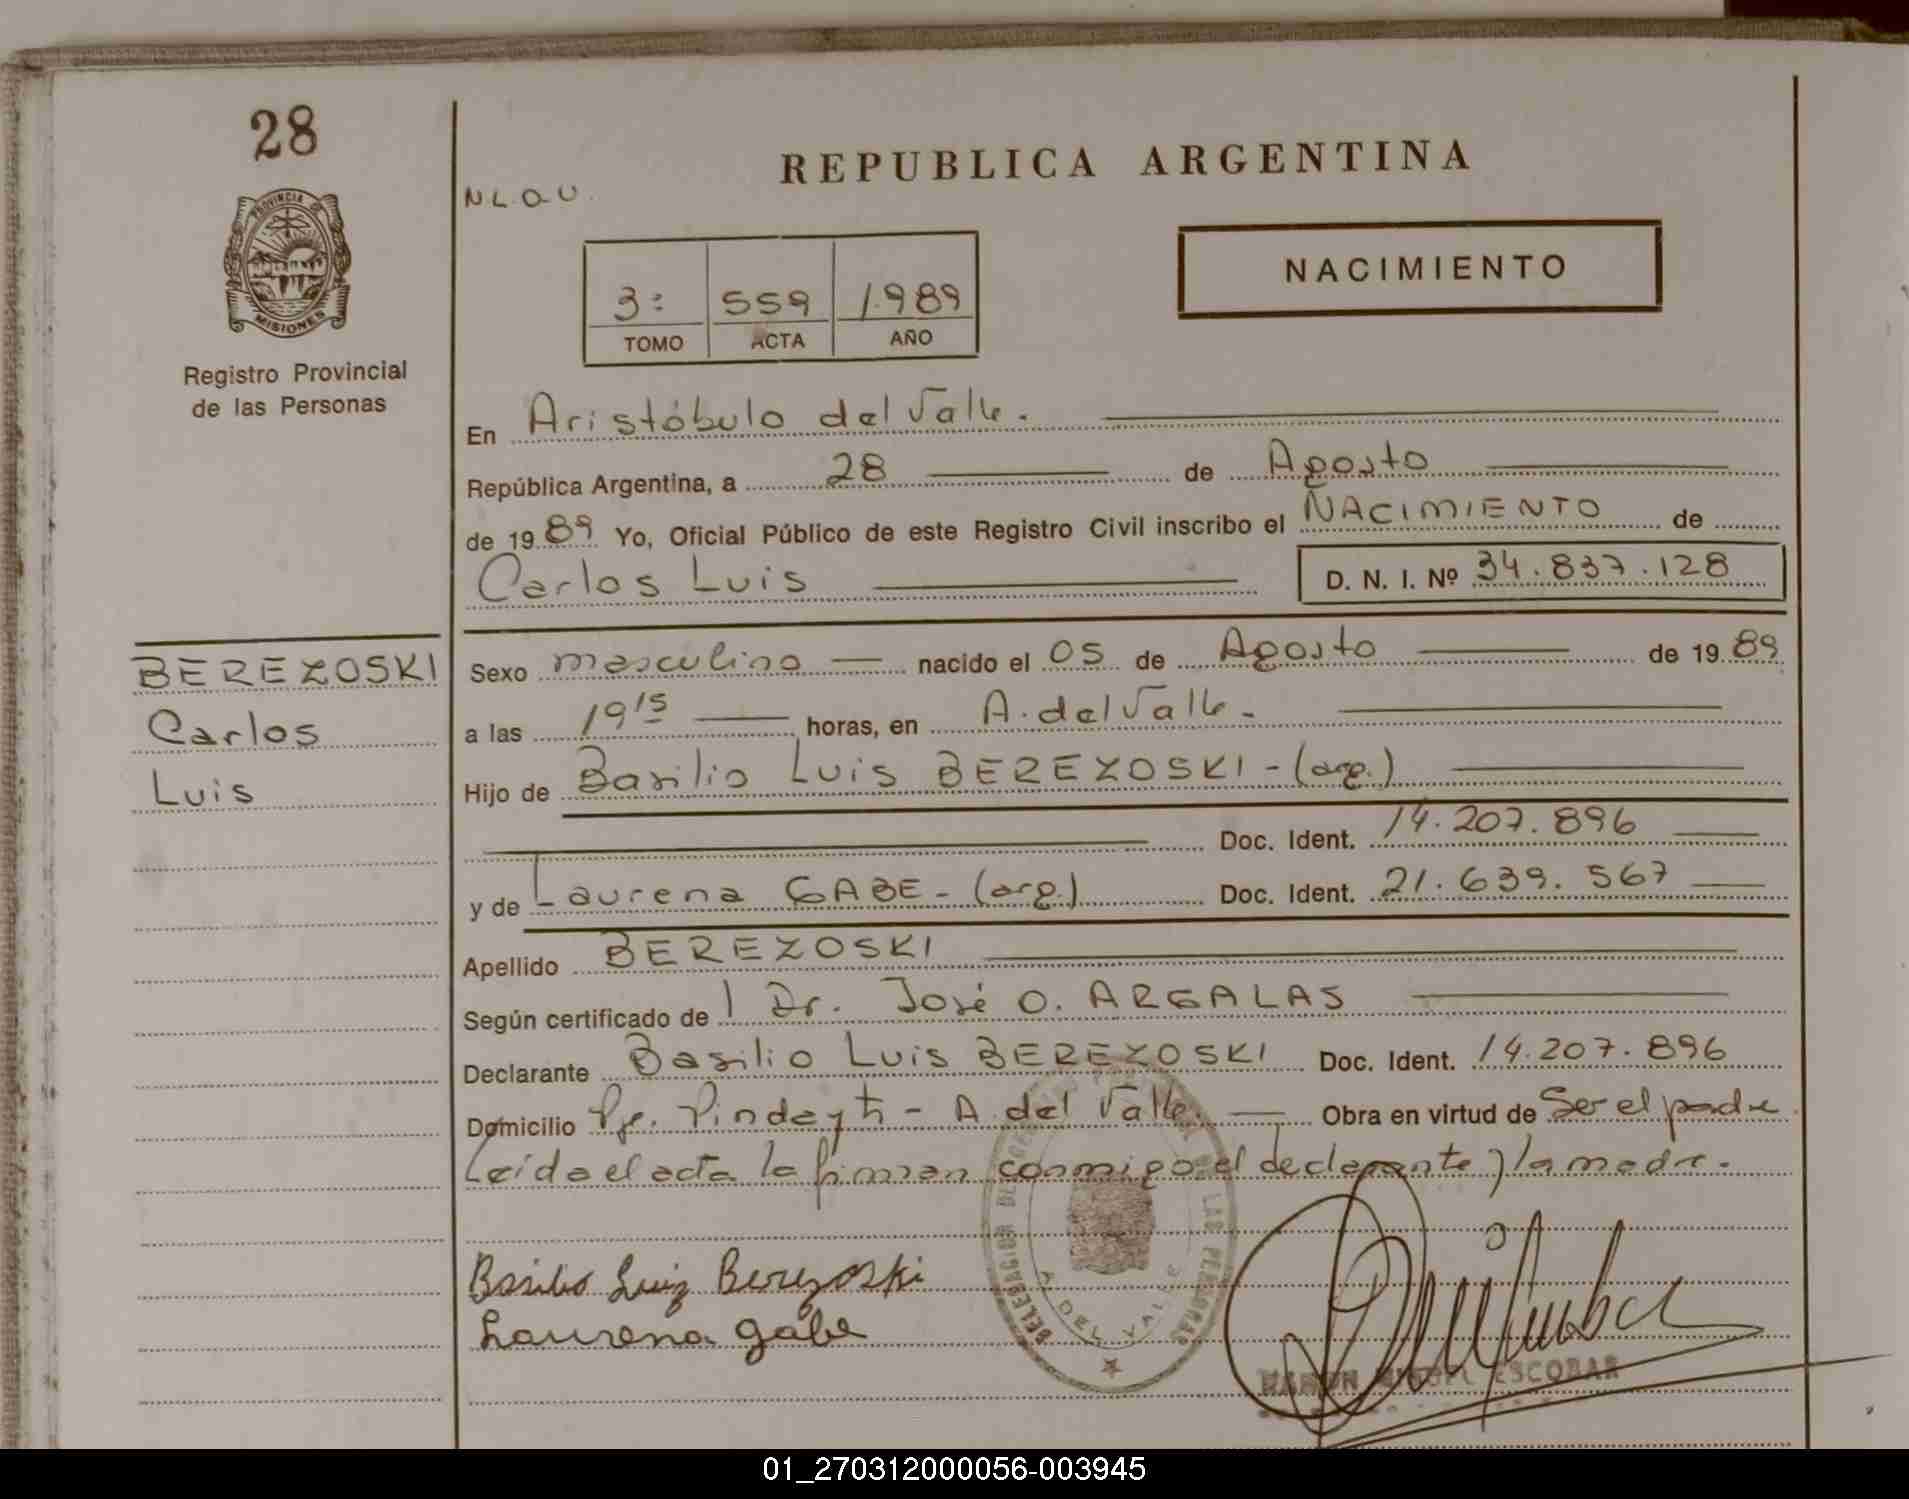 28
PROVINCIA DE
MISIONES
Registro Provincial
de las Personas
BEREZOSKI
Carlos
Luis
REPUBLICA ARGENTINA
N.L.O.U.
NACIMIENTO
3: 559 1.989
TOMO ACTA AÑO
En Aristóbulo del Valle.
República Argentina, a 28 de Agosto
de 1989 Yo, Oficial Público de este Registro Civil inscribo el NACIMIENTO de
Carlos Luis D. N. I. Nº 34.837.128
Sexo masculino nacido el 05 de Agosto de 1989
a las 19 15 horas, en A. del Valle.
Hijo de Basilio Luis BEREZOSKI - (arg.)
Doc. Ident. 14.207.896
y de Laurena GABE - (arg.) Doc. Ident. 21.639.567
Apellido BEREZOSKI
Según certificado de l Dr. José O. ARGALAS
Declarante Basilio Luis BEREZOSKI Doc. Ident. 14.207.896
Domicilio Pje. Pindayti - A. del Valle. Obra en virtud de Ser el padre
Leída el acta la firman conmigo el declarante y la madre.
Basilio Luiz Berezoski
Laurena gabe
DELEGACION DEL LAS PERSONAS
A. DEL VALLE
RAMON MIGUEL ESCOBAR
01_270312000056-003945